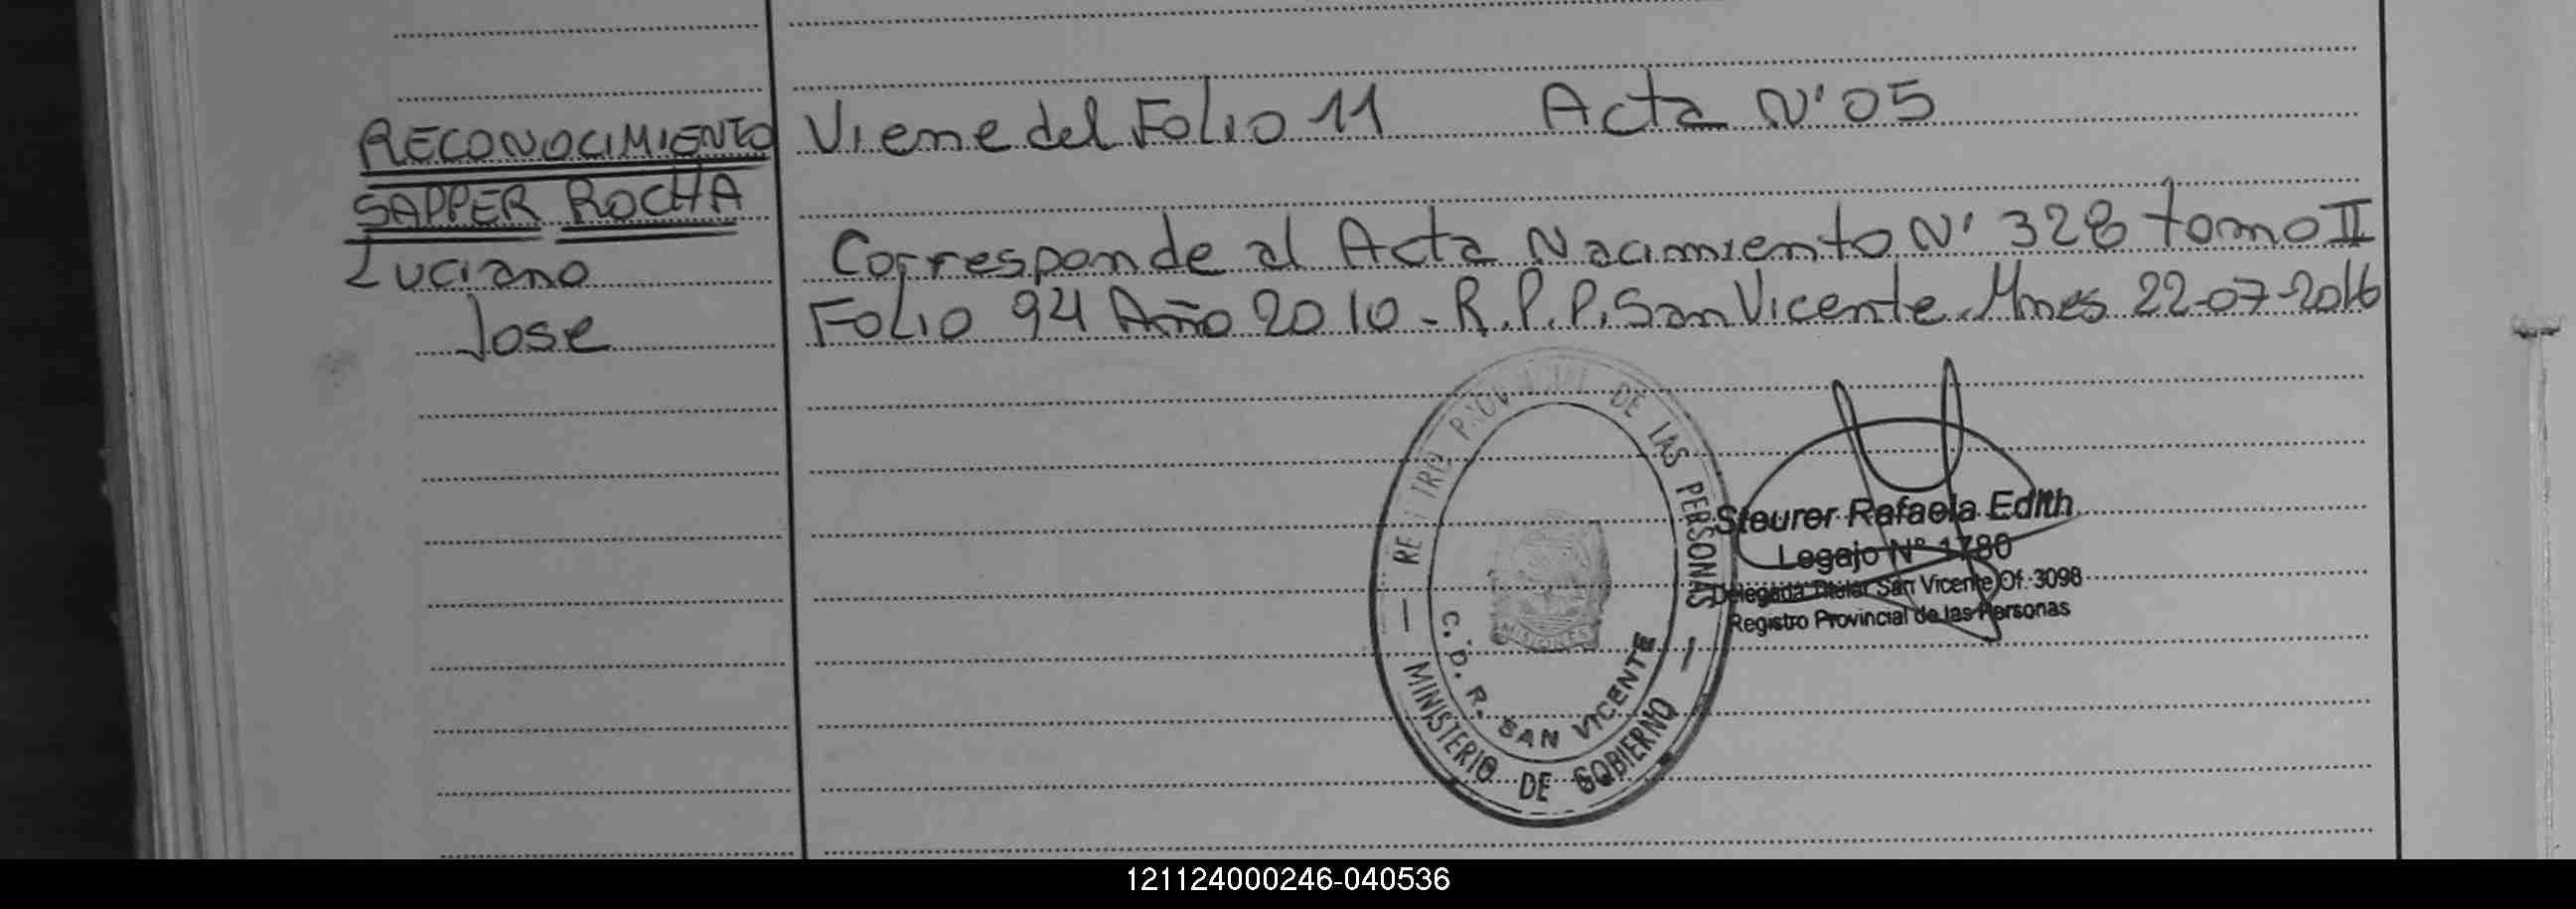 RECONOCIMIENTO
SAPPER ROCHA
Luciano
Jose
Viene del Folio 11 Acta N° 05
Corresponde al Acta Nacimiento N° 328 tomo II
Folio 94 Año 2010 - R.P.P. San Vicente. Mnes 22-07-2016
REGISTRO PROVINCIAL DE LAS PERSONAS
MISIONES
C.D.R. SAN VICENTE
MINISTERIO DE GOBIERNO
Steurer Rafaela Edith
Legajo N° 1780
Delegada Titular San Vicente Of. 3098
Registro Provincial de las Personas
121124000246-040536